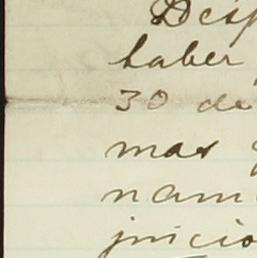 Desp
haber
30 de
mas
nam
juicio